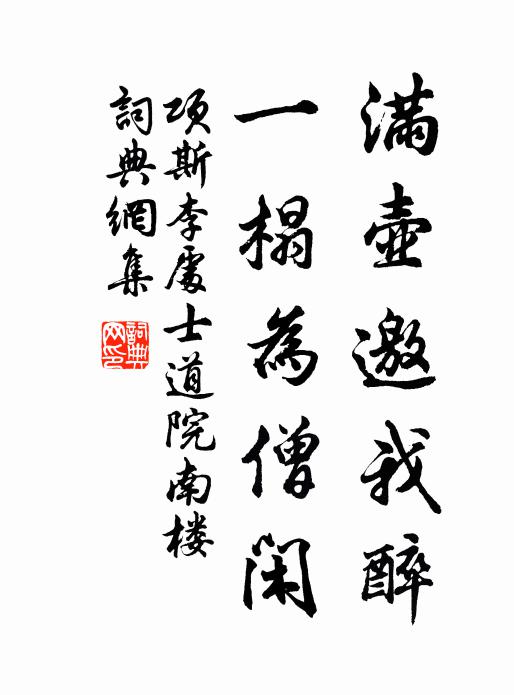 满壺邀我醉
一榻為僧閑
项斯李處士道院南楼
詞典網集
詞典网印